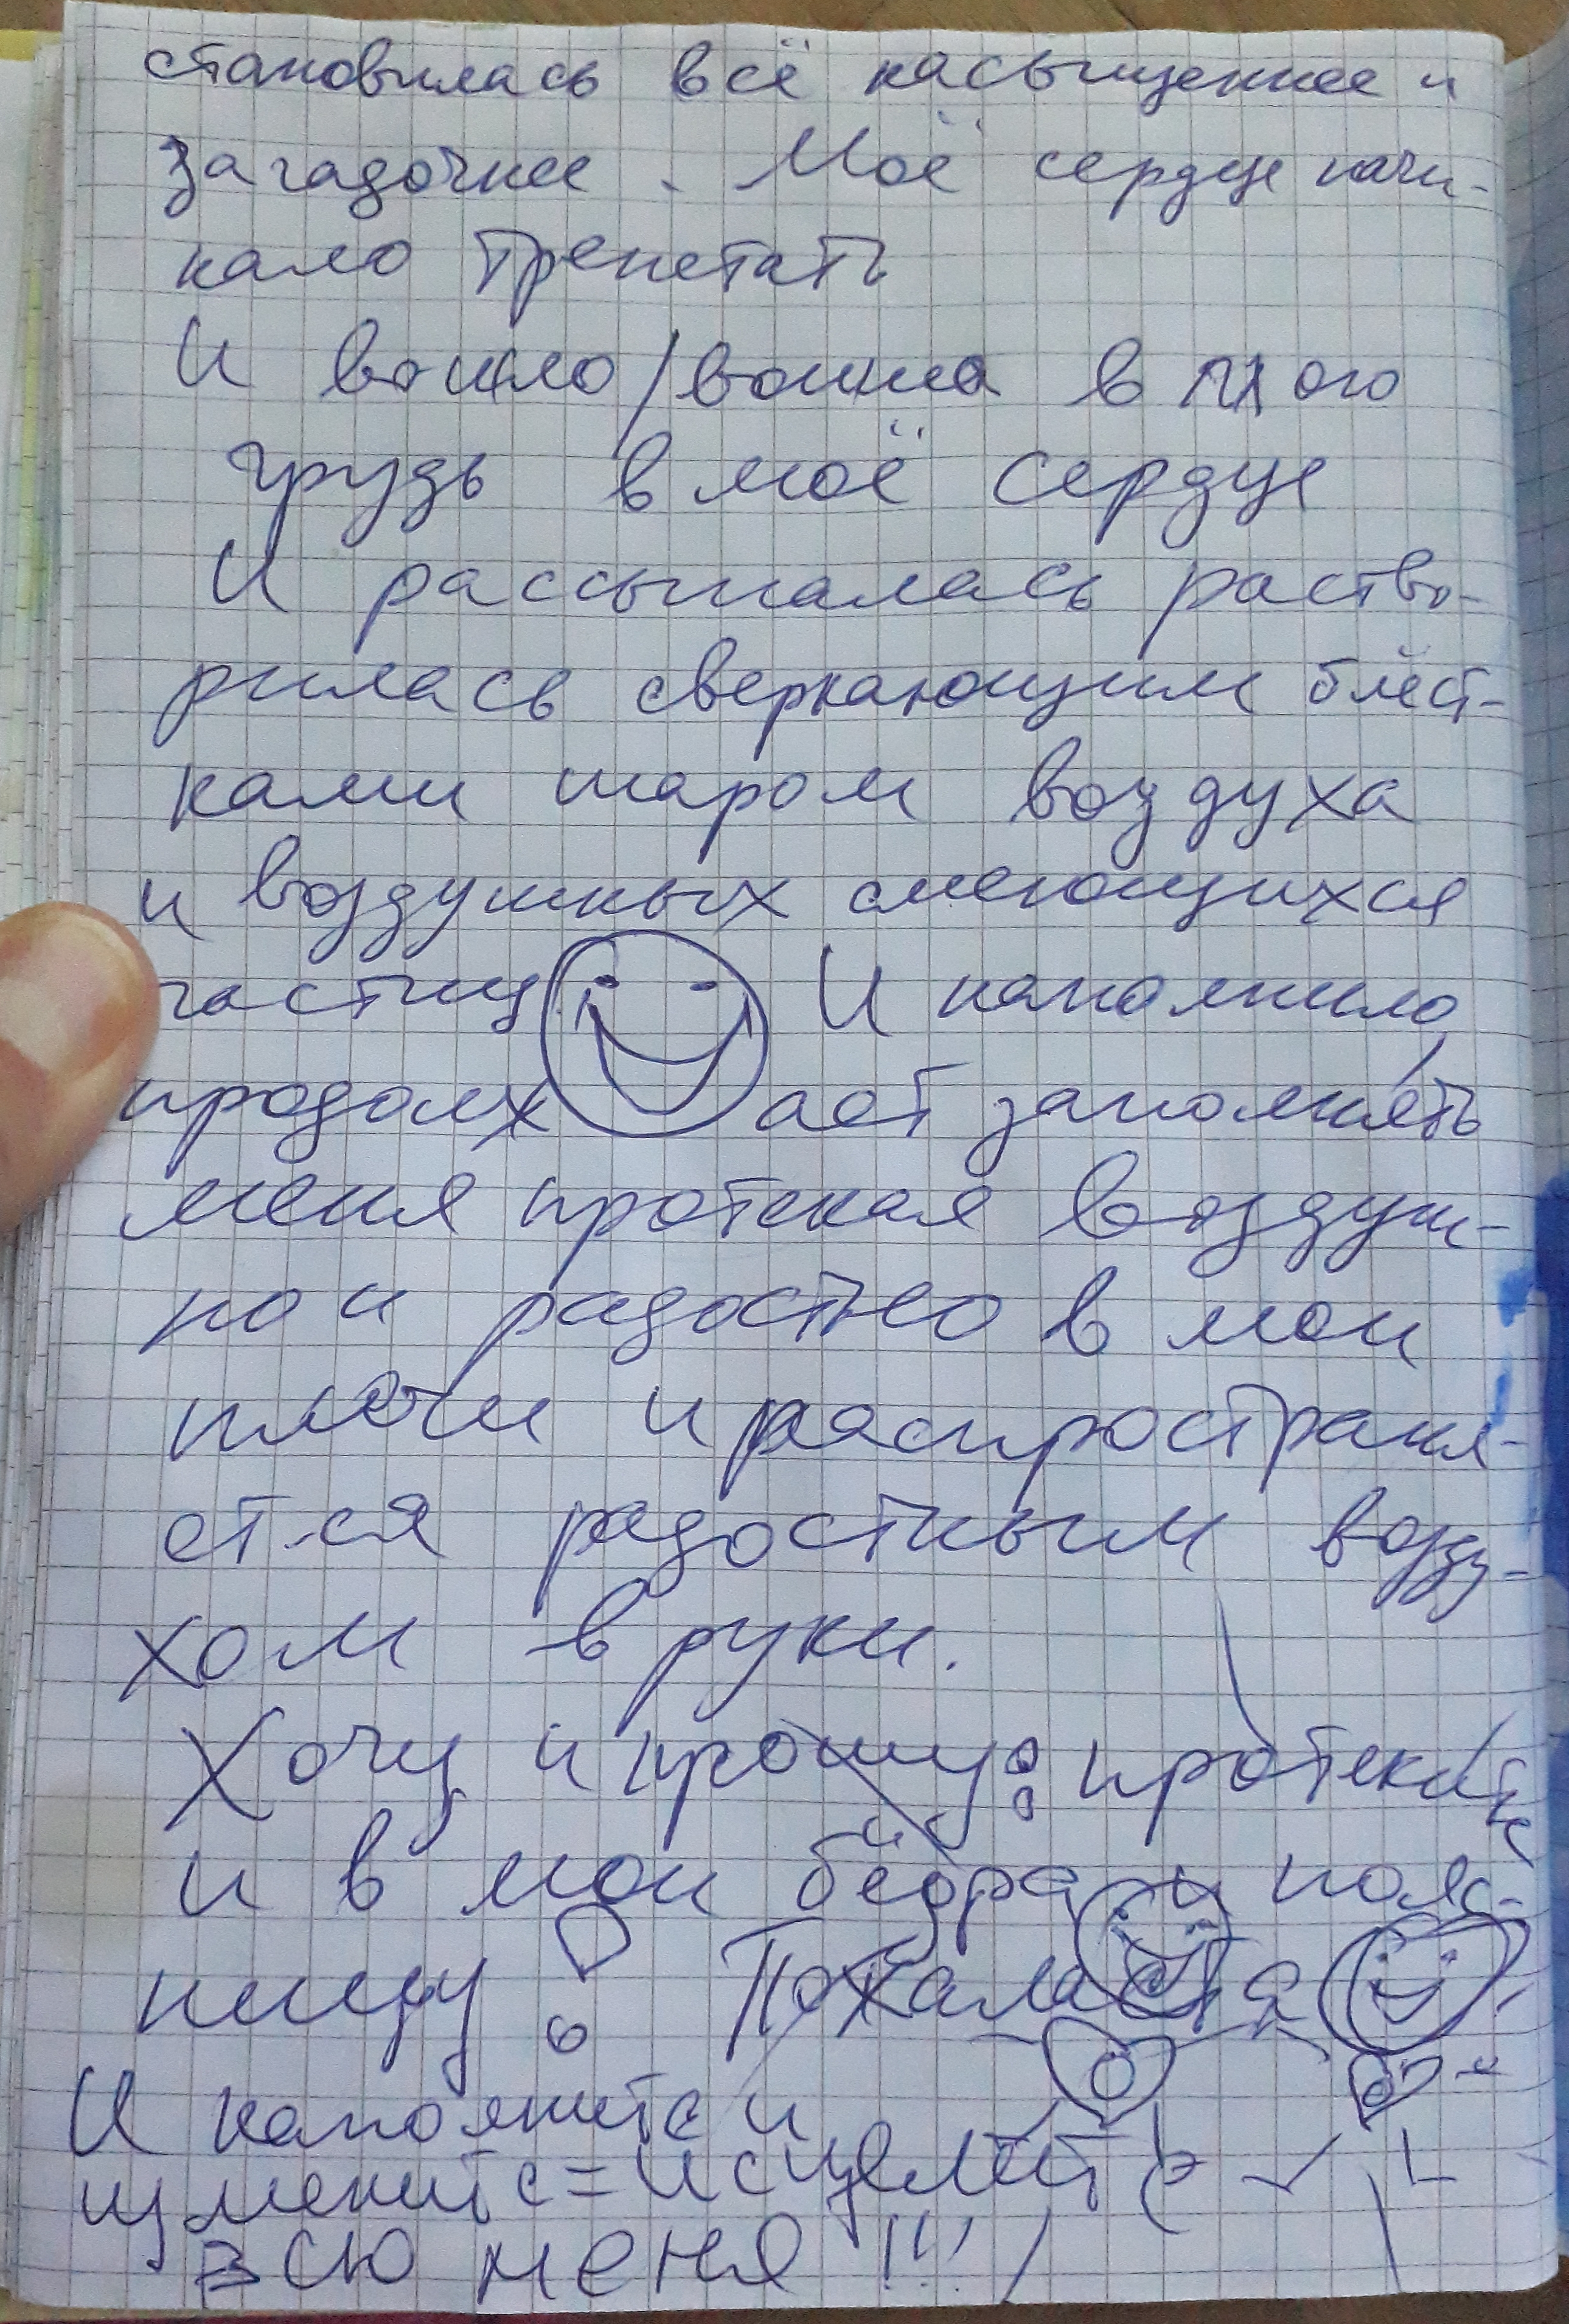 становилась всё насыщеннее и
загадочнее. Моё сердце начи-
нало трепетать
И вошло/вошла в мою
грудь в моё сердце
И рассыпалась раство-
рилась сверкающим блёст-
ками шаром воздуха
и воздушных смеющихся
частиц И наполнило,
продолжает заполнять
меня протекая воздуш-
но и радостно в мои
плечи и распространя-
ется радостным возду-
хом в руки.
Хочу и прошу: протеките
и в мои бёдра и пояс-
ницу! Пожалуйста
И наполните и
измените = исцелите
всю меня!!!